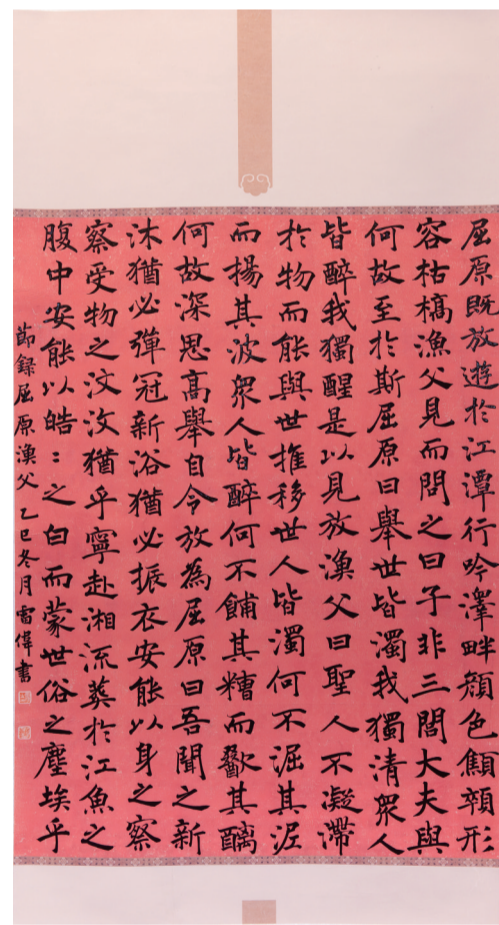 屈原既放遊於江潭行吟澤畔顏色顦顇形
容枯槁漁父見而問之曰子非三閭大夫與
何故至於斯屈原曰舉世皆濁我獨清衆人
皆醉我獨醒是以見放漁父曰聖人不凝滯
於物而能與世推移世人皆濁何不淈其泥
而揚其波衆人皆醉何不餔其糟而歠其醨
何故深思高舉自令放為屈原曰吾聞之新
沐猶必彈冠新浴猶必振衣安能以身之察
察受物之汶汶猶乎寧赴湘流葬於江魚之
腹中安能以皓〻之白而蒙世俗之塵埃乎
節錄屈原漁父乙巳冬月雷偉書